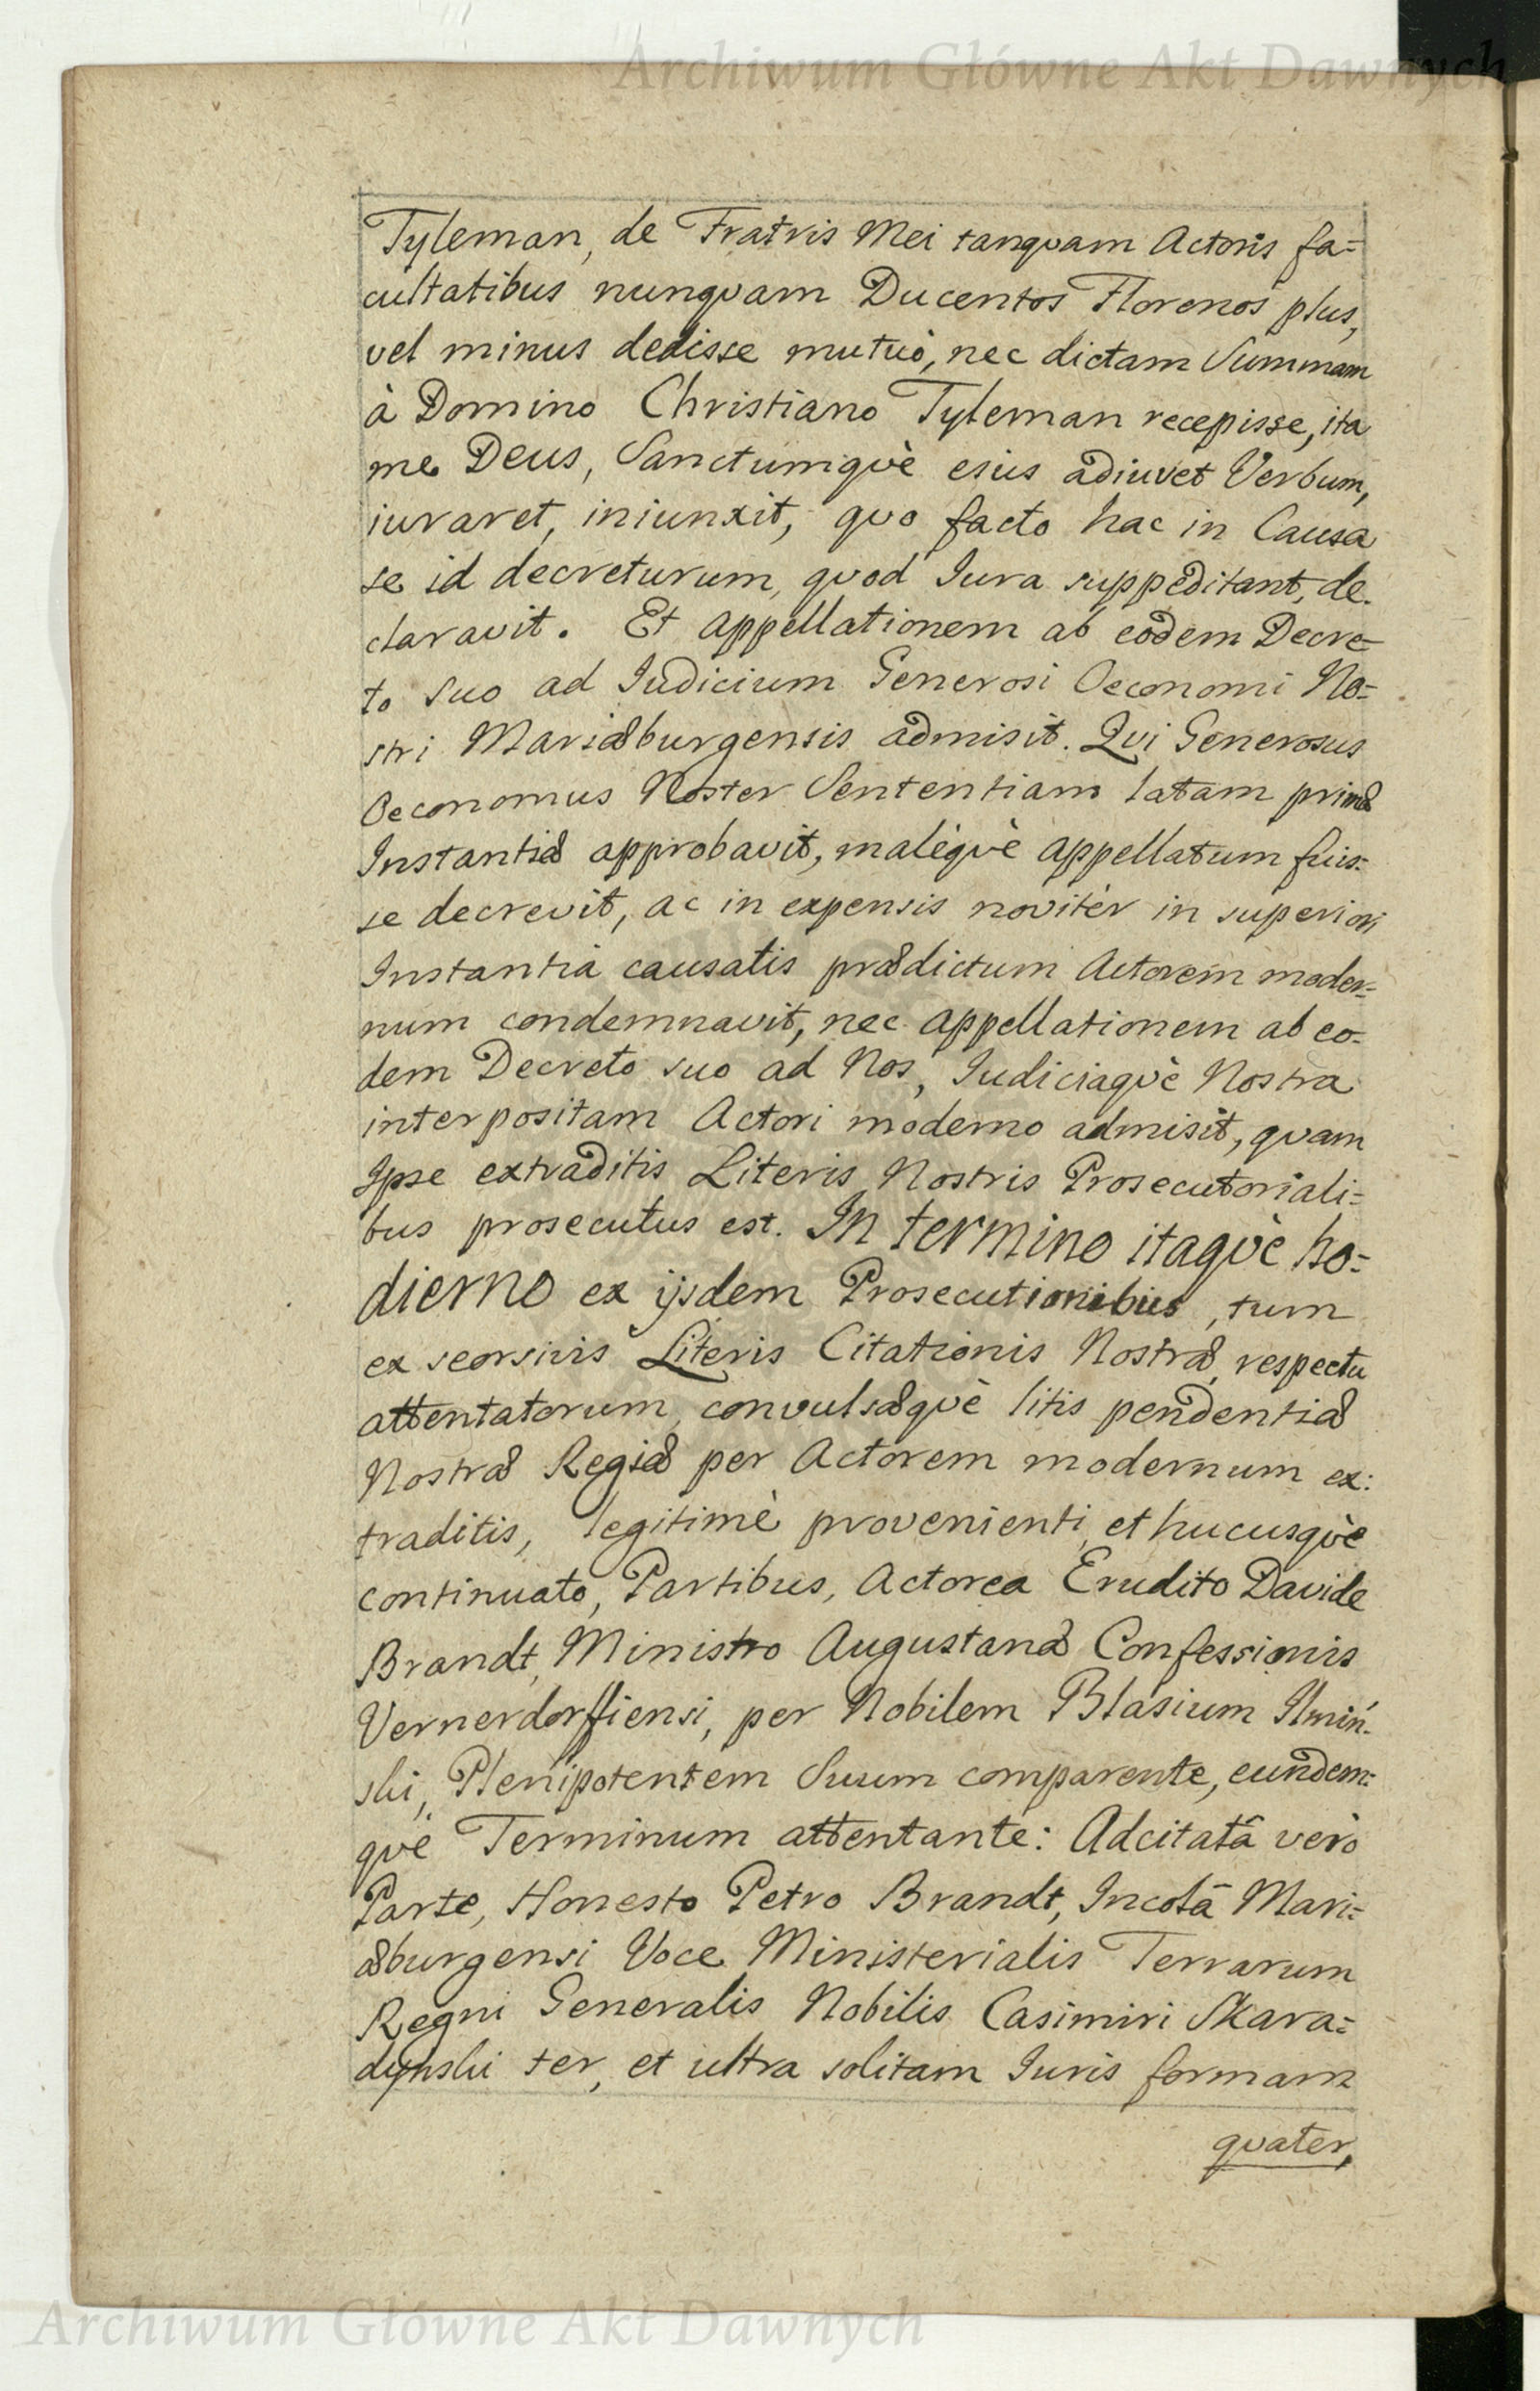 Archiwum Główne Akt Dawnych
Tyleman, de Fratris Mei tanquam Actoris fa=
cultatibus nunquam Ducentos Florenos plus,
vel minus dedisse mutuò, nec dictam Summam
à Domino Christiano Tyleman recepisse, ita
me Deus, Sanctumquè eius adiuvet Verbum,
iuraret, iniunxit, quo facto hac in Causa
se id decreturum, quod Iura suppeditant, de-
claravit. Et appellationem ab eodem Decre-
to suo ad Iudicium Generosi Oeconomi No=
stri Mariæburgensis admisit. Qui Generosus
Oeconomus Noster Sententiam latam primæ
Instantiæ approbavit, malèquè appellatum fuis=
se decrevit, ac in expensis novitèr in superiori
Instantia causatis prædictum Actorem moder=
num condemnavit, nec appellationem ab eo=
dem Decreto suo ad Nos, Iudiciaquè Nostra
interpositam Actori moderno admisit, quam
Ipse extraditis Literis Nostris Prosecutoriali=
bus prosecutus est. In termino itaquè ho=
dierno ex ijsdem Prosecutionibus, tum
ex seorsivis Literis Citationis Nostræ, respectu
attentatorum, convulsæquè litis pendentiæ
Nostræ Regiæ per Actorem modernum ex:
traditis, legitimè provenienti, et hucusquè
continuato, Partibus, Actorea Erudito Davide
Brandt, Ministro Augustanæ Confessionis
Vernerdorffiensi, per Nobilem Blasium Ilmiń=
ski, Plenipotentem Suum comparente, eundem=
què Terminum attentante: Adcitatâ verò
Parte, Honesto Petro Brandt, Incolâ Mari=
æburgensi Voce Ministerialis Terrarum
Regni Generalis Nobilis Casimiri Skara=
dynski ter, et ultra solitam Iuris formam
quater,
Archiwum Główne Akt Dawnych